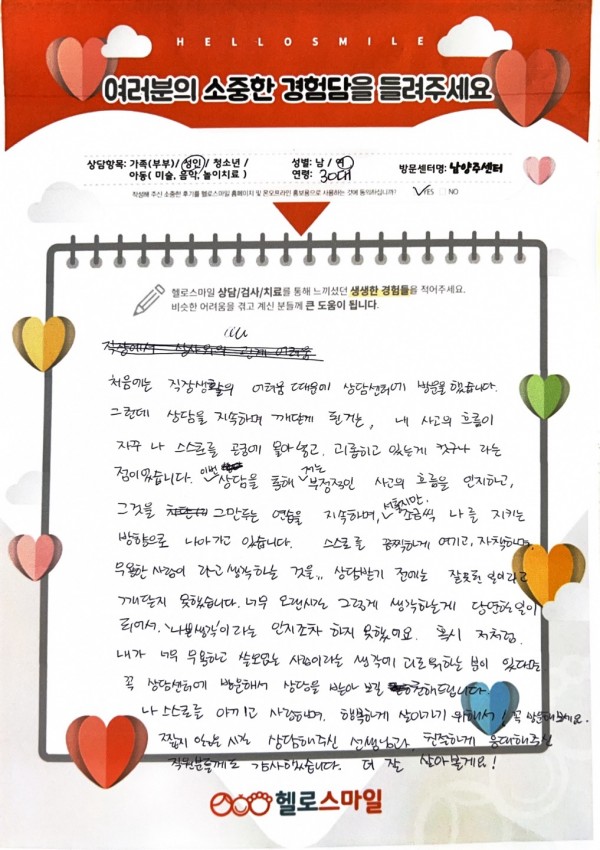 HELLOSMILE
여러분의 소중한 경험담을 들려주세요
상담항목: 가족(부부)/ 성인 / 청소년 / 성별: 남 / 여 방문센터명: 남양주센터
아동( 미술, 음악, 놀이치료 ) 연령: 30대
작성해 주신 소중한 후기를 헬로스마일 홈페이지 및 온오프라인 홍보용으로 사용하는 것에 동의하십니까? ✓YES □ NO
헬로스마일 상담/검사/치료를 통해 느끼셨던 생생한 경험들을 적어주세요.
비슷한 어려움을 겪고 계신 분들께 큰 도움이 됩니다.
직장에서 상사와의 관계 어려움
처음에는 직장생활의 어려움 때문에 상담센터에 방문을 했습니다.
그런데 상담을 지속하며 깨닫게 된것은, 내 사고의 흐름이
자꾸 나 스스로를 곤궁에 몰아넣고, 괴롭히고 있는게 컸구나 라는
점이었습니다. 이번 상담을 통해 저는 부정적인 사고의 흐름을 인지하고,
그것을 그만두는 연습을 지속하며, 서툴지만 조금씩 나를 지키는
방향으로 나아가고 있습니다. 스스로를 끔찍하게 여기고, 자책하며,
무용한 사람이 라고 생각하는 것을, 상담받기 전에는 잘못된 일이라고
깨닫지 못했습니다. 너무 오랜시간 그렇게 생각하는게 당연한 일이
되어서, '나쁜생각'이라는 인지조차 하지 못했어요. 혹시 저처럼,
내가 너무 무용하고 쓸모없는 사람이라는 생각에 괴로워하는 분이 있다면
꼭 상담센터에 방문해서 상담을 받아 보길 추천해드립니다.
나 스스로를 아끼고 사랑하며, 행복하게 살아가기 위해서! 꼭 방문해보세요.
짧지 않은 시간 상담해주신 선생님과, 친절하게 응대해주신
직원분들께도 감사했습니다. 더 잘 살아볼게요!
헬로스마일